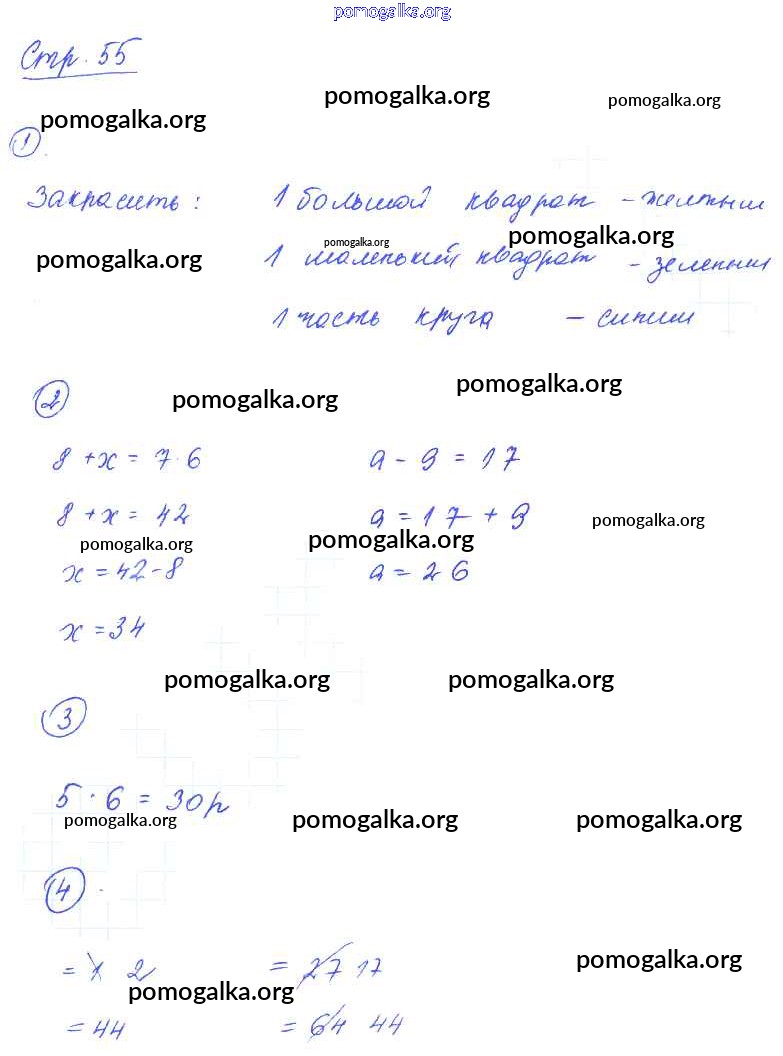 pomogalka.org
Стр. 55
pomogalka.org pomogalka.org
pomogalka.org
1
Закрасить: 1 большой квадрат - желтым
pomogalka.org pomogalka.org
pomogalka.org 1 маленький квадрат - зеленым
1 часть круга - синим
pomogalka.org
2 pomogalka.org
8 + x = 7 · 6 a - 9 = 17
8 + x = 42 a = 17 + 9 pomogalka.org
pomogalka.org pomogalka.org
x = 42 - 8 a = 26
x = 34
pomogalka.org pomogalka.org
3
5 · 6 = 30 р
pomogalka.org pomogalka.org pomogalka.org
4
= 1 2 = 27 17 pomogalka.org
pomogalka.org
= 44 = 64 44